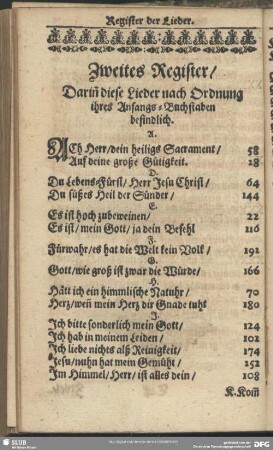 Register der Lieder.
Zweites Register/
Dariñ diese Lieder nach Ordnung
ihres Anfangs-Buchstaben
befindlich.
A.
ACh Herr/dein heiligs Sacrament/ 58
Auf deine große Gütigkeit. 18
D.
Du Lebens-Fürst/ Herr Jesu Christ/ 64
Du süßes Heil der Sünder/ 144
E.
Es ist hoch zubeweinen/ 22
Es ist/ mein Gott/ ja dein Befehl 116
F.
Fürwahr/es hat die Welt kein Volk/ 192
G.
Gott/wie groß ist zwar die Würde/ 166
H.
Hätt ich ein himmlische Natuhr/ 70
Herz/weñ mein Herz dir Gnade tuht 180
J.
Ich bitte sonderlich mein Gott/ 124
Ich hab in meinem Leiden/ 102
Ich liebe nichts alß Reinigkeit/ 174
Jesu/nuhn hat mein Gemüht/ 152
Im Himmel/Herr/ist alles dein/ 108
K.Kom̃
SLUB
DFG